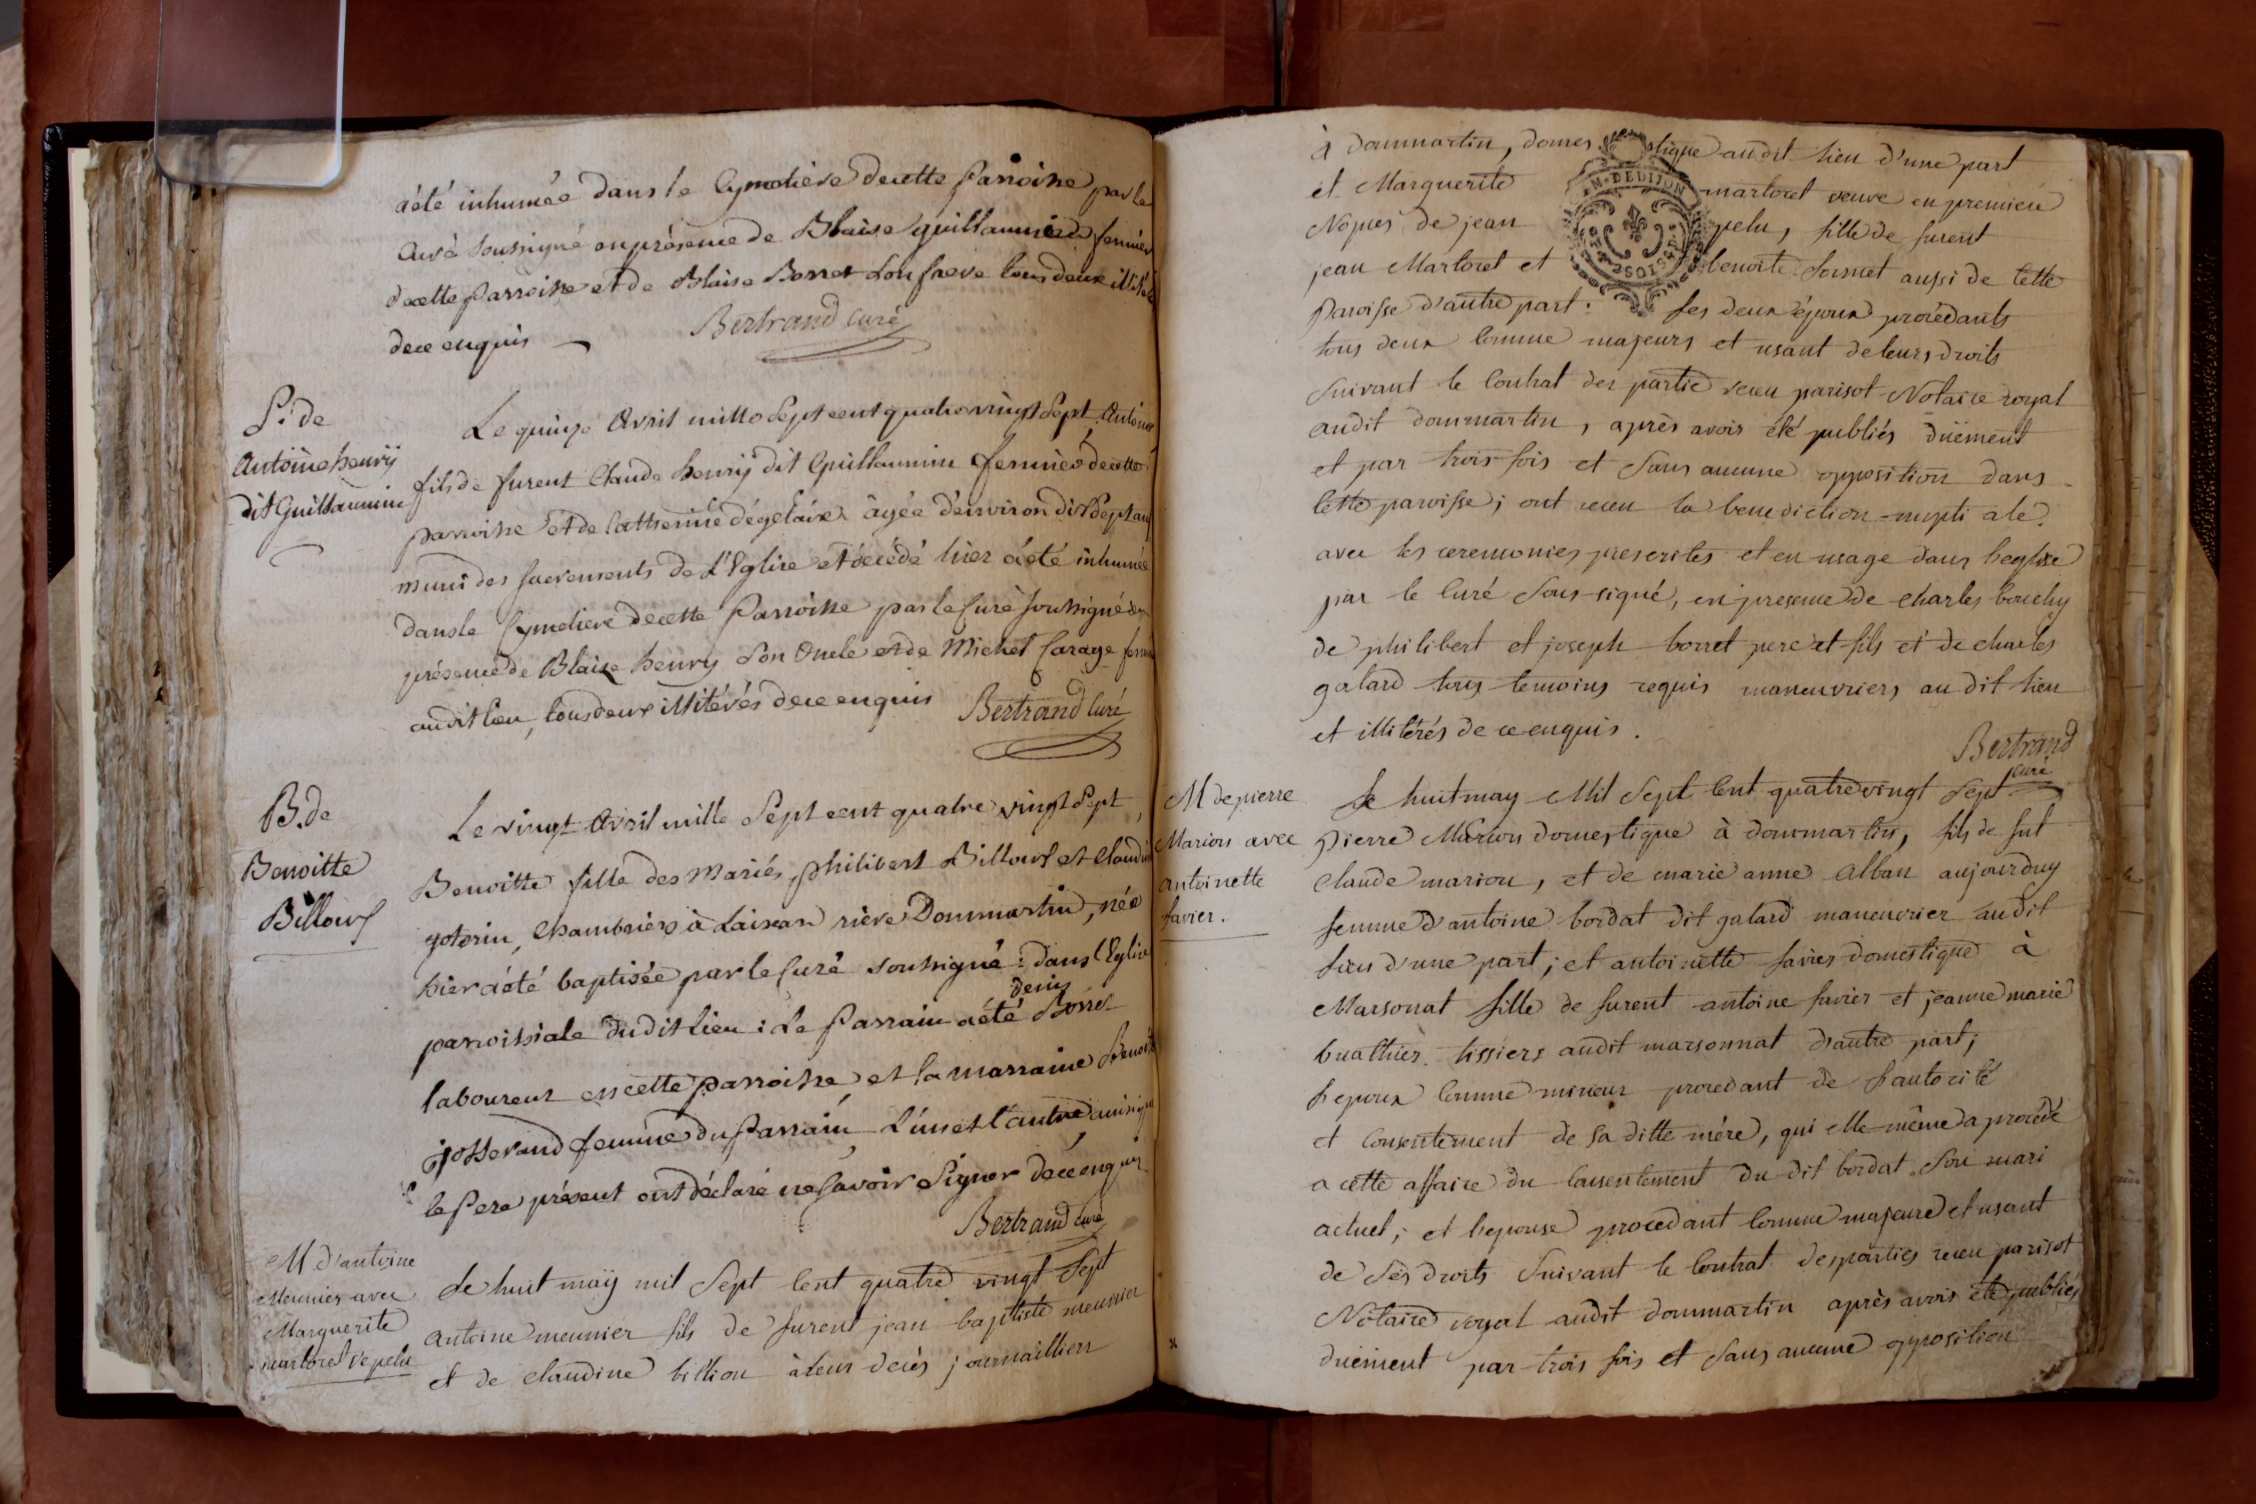 a été inhumée dans le Cymetiere de cette Parroisse par le
Curé Soussigné en présence de Blaise guillaumin fermier
de cette Parroisse et de Blaise Borret Son frere tous deux illitérés
de ce enquis
Bertrand Curé
S: de
Antoine henrÿ
dit Guillaumin
Le quinze Avril mille Sept cent quatrevingt Sept, Antoine
fils de furent Claude henrÿ dit Guillaumin fermier de cette
parroisse et de Catherine âgée d'environ dix Sept ans
muni des sacrements de L'Eglise et décédé hier a été inhumé
dans le Cymetiere de cette Parroisse par le Curé Soussigné en
présence de Blaize henry Son Oncle et de Michel Carage
audit lieu, tous deux illitérés de ce enquis
Bertrand Curé
B. de
Benoitte
Le vingt Avril mille Sept cent quatre vingt Sept,
Benoitte fille des Mariés philibert et
à rière Dommartin, née
hier a été baptisée par le Curé soussigné dans l'Eglise
denis
parroissiale dudit lieu: Le Parrain a été Borret
laboureur en cette parroisse et la marraine Benoite
josserand femme du Parrain L'un et l'autre ainsi que
le Pere présent ont déclaré ne savoir Signer de ce enquis
Bertrand curé
M d'antoine
Meunier avec
Marguerite
martoret Ve pelu
Le huit maÿ mil Sept Cent quatre vingt Sept
antoine meunier fils de furent jean baptiste meunier
et de Claudine billion à leur decès journailliers
à dommartin, domestique audit lieu d'une part
et Marguerite martoret veuve en premiere
Nopces de jean pelu, fille de furent
jean Martoret et benoite Sornet aussi de Cette
Paroisse d'autre part: Les deux époux procédants
tous deux Comme majeurs et usant de leurs droits
Suivant le Contrat des partie receu parisot Notaire royal
audit dommartin, après avoir été publiés düement
et par trois fois et Sans aucune opposition dans
Cette paroisse; ont receu la benediction nuptiale
avec les ceremonies prescrites et en usage dans l'eglise
par le Curé Sous-signé, en presence de Charles bouchy
de philibert et joseph borret pere et fils et de charles
galard tous temoins requis maneuvriers au dit lieu
et illiterés de ce enquis.
Bertrand
curé
M de pierre
Marion avec
antoinette
favier.
Le huit may Mil Sept Cent quatrevingt Sept
Pierre Marion domestique à dommartin, fils de fut
Claude marion, et de marie anne alban aujourduy
femme d'antoine bordat dit galard maneuvrier audit
Lieu d'une part; et antoinette favier domestique à
Marsonat fille de furent antoine favier et jeanne marie
buathier tissiers audit marsonnat d'autre part;
L'epoux Comme mineur procedant de L'autorité
et Consentement de Sa ditte mère, qui elle-même a procédé
a cette affaire du Consentement du dit bordat Son mari
actuel; et l'epouse procedant Comme majeure et usant
de Ses droits Suivant le Contrat des parties receu parisot
Notaire royal audit dommartin après avoir été publiés
duement par trois fois et Sans aucune opposition